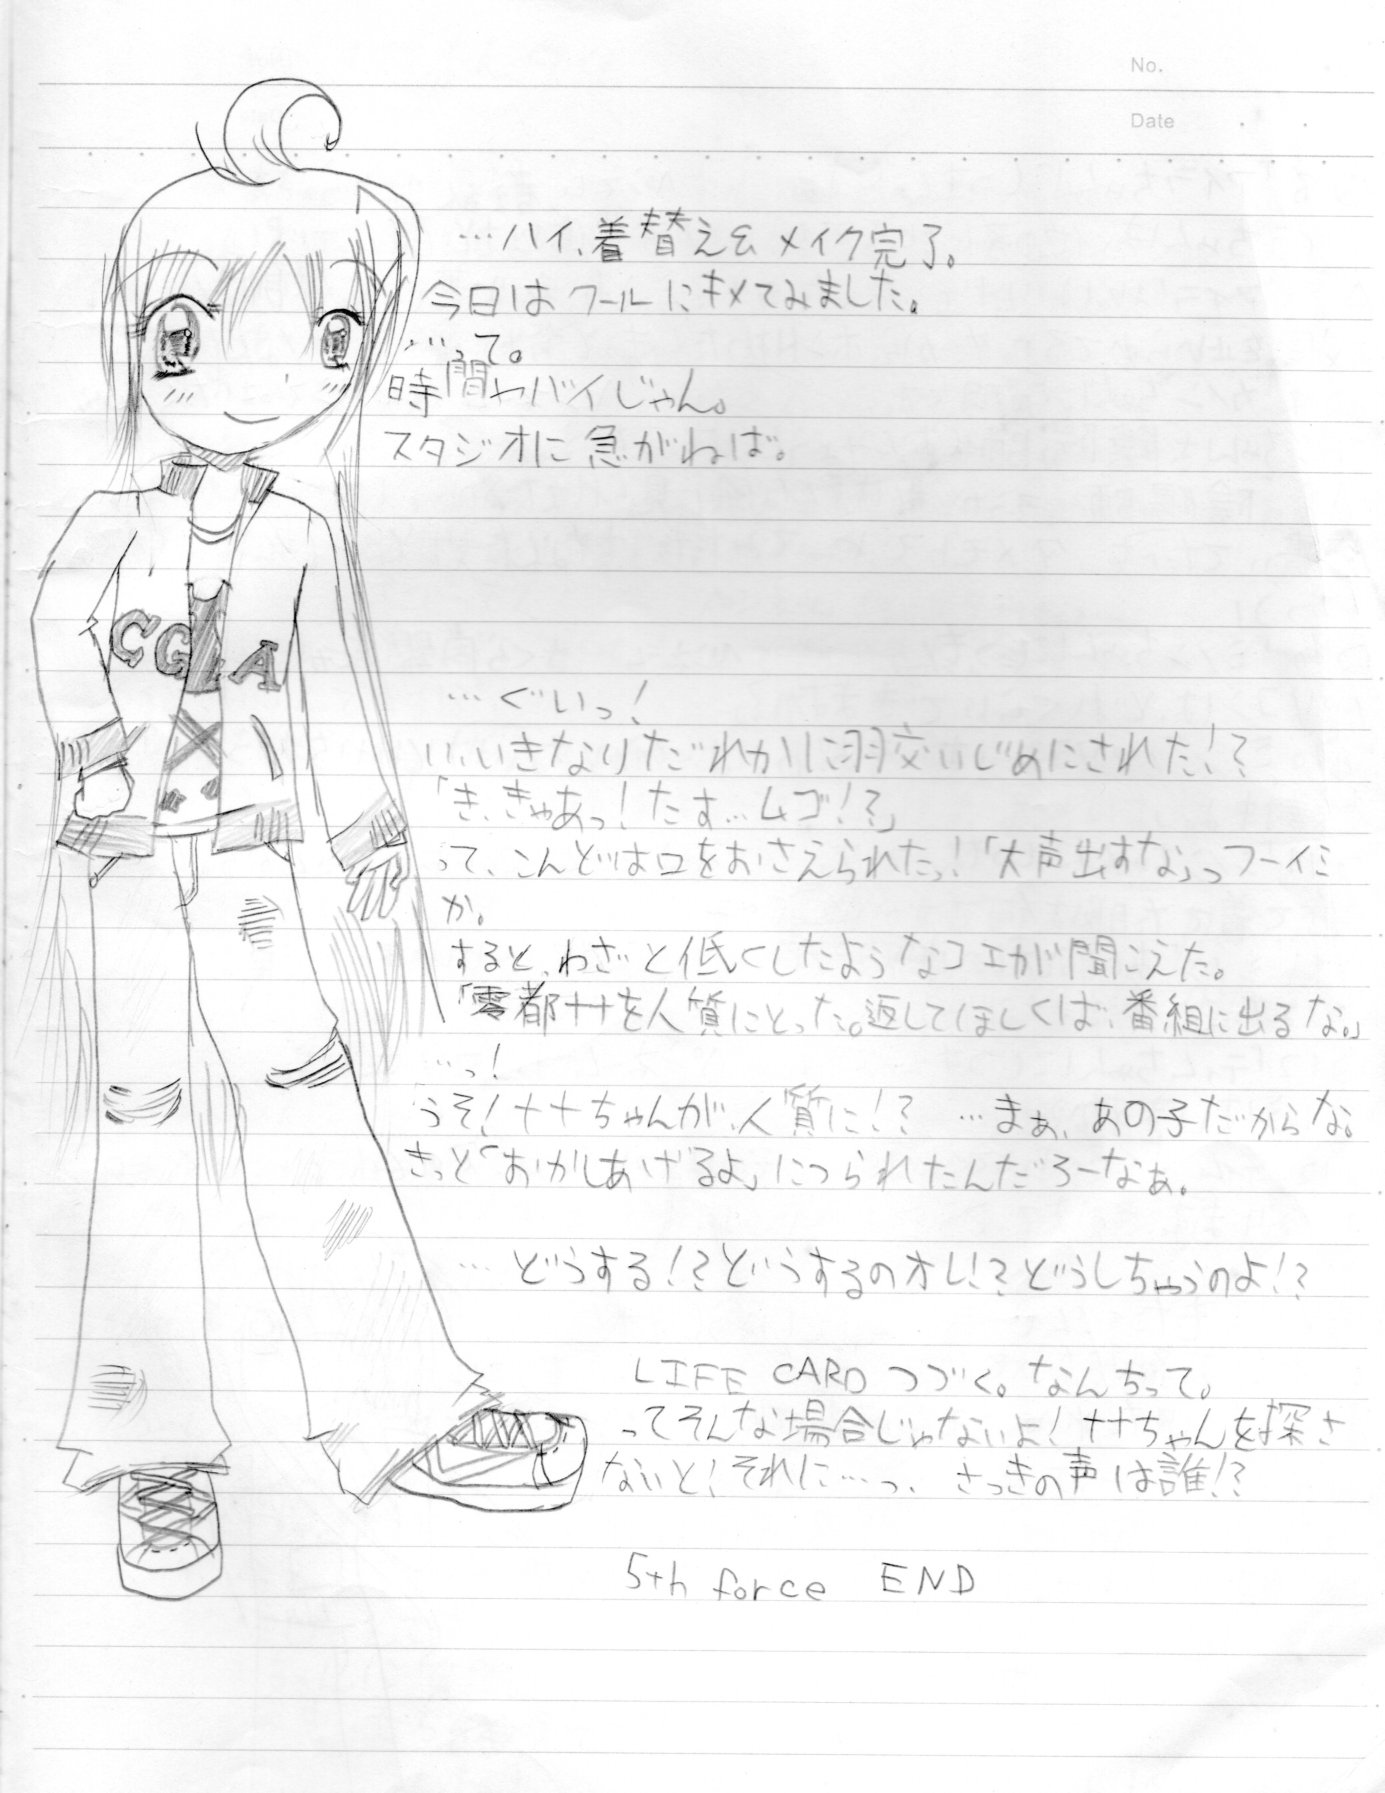 No.
Date
…ハイ、着替え& メイク完了。
今日は クールにキメてみました。
…って。
時間ヤバイじゃん。
スタジオに急がねば。
CGLA
… ぐいっ!
い、いきなりだれかに羽交いじめにされた!?
「き、きゃあっ!たす…ムゴ!?」
って、こんどは口をおさえられたっ!「大声出すな」っつーイミ
か。
すると、わざと低くしたようなコエが聞こえた。
「零都ナナを人質にとった。返してほしくば、番組に出るな。」
…っ!
うそ!ナナちゃんが、人質に!? …まぁ、あの子だからな。
きっと「おかしあげるよ」につられたんだろーなぁ。
… どうする!?どうするのオレ!?どうしちゃうのよ!?
LIFE CARD つづく。なんちって。
ってそんな場合じゃないよ!ナナちゃんを探さ
ないと!それに…っ、 さっきの声は誰!?
5th force END